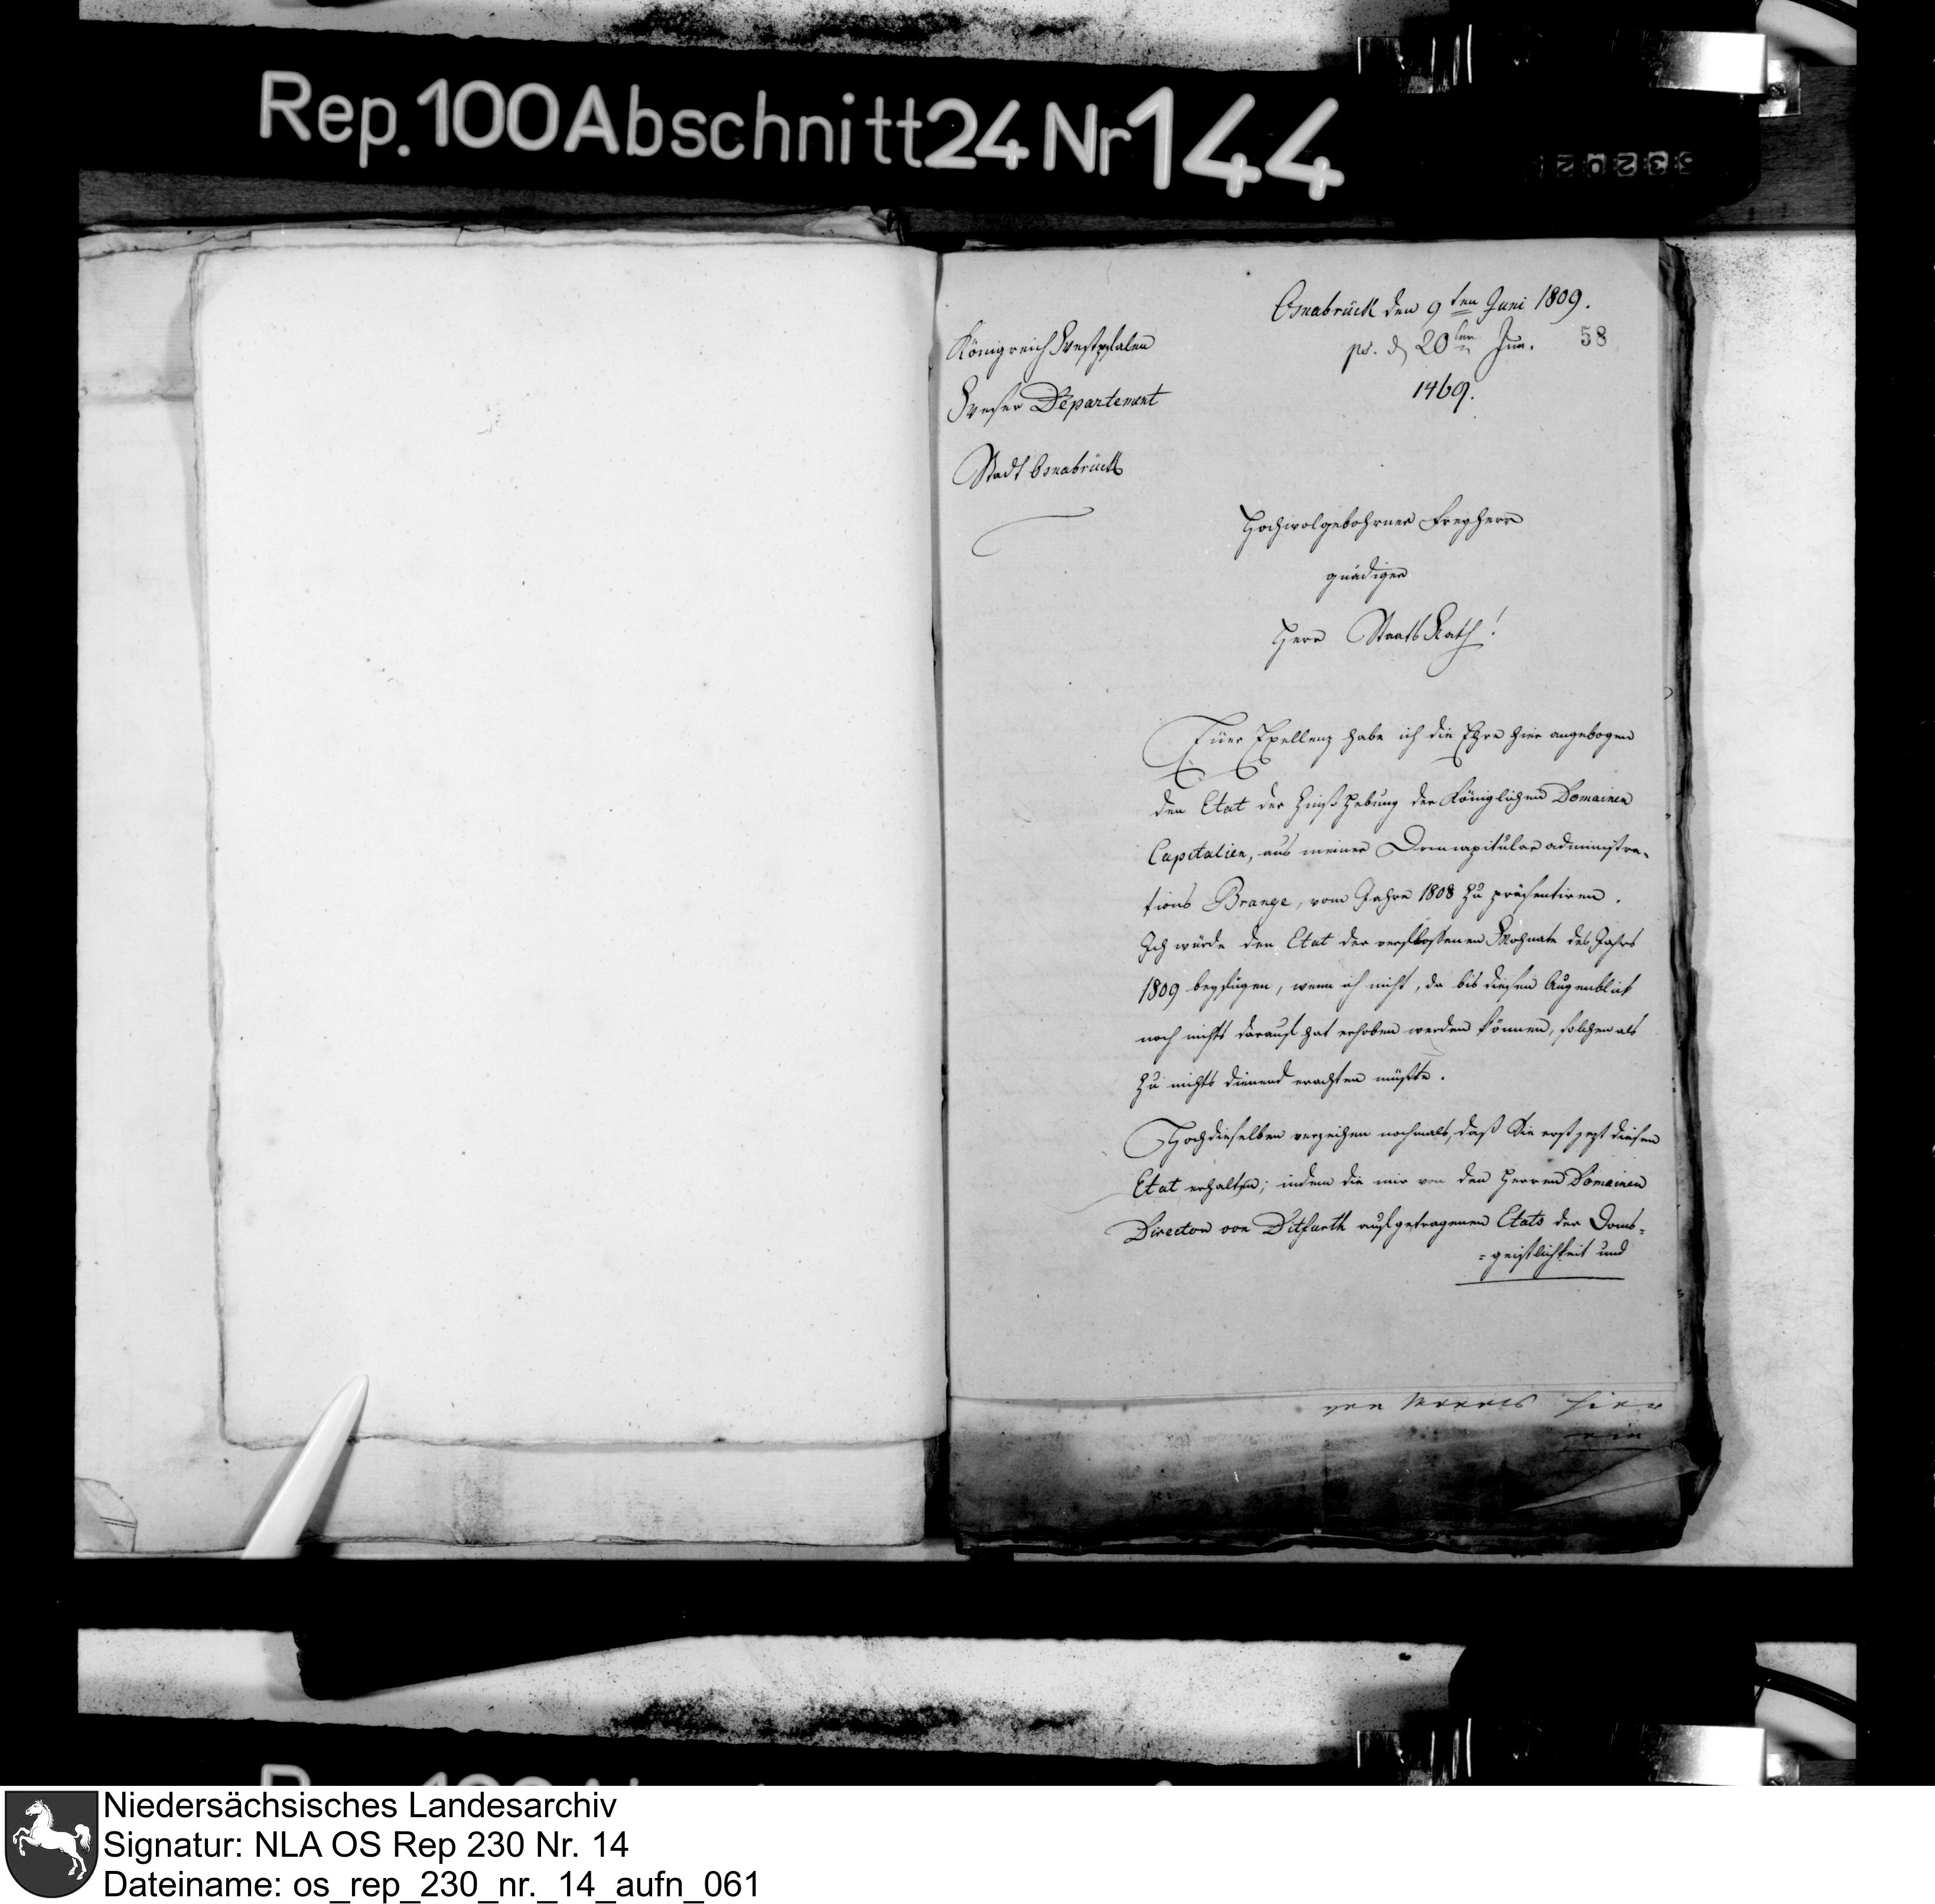 Rep. 100 Abschnitt 24 Nr 144
Osnabrück den 9ten Juni 1809.
58
ps. d 20ten Jun.
1469.
Königreich Westphalen
Weser Département
Stadt Osnabrück
Hochwolgebohrner Freyherr
gnädiger
Herr Staats Rath!
Euer Exellenz habe ich die Ehre hier angebogen
den Etat der Hebung der Königlichen Domainen
Capitalien, aus meiner Domcapitular administra-
tions Brange, vom Jahre 1808 zu präsentiren.
Ich würde den Etat der verflossenen Mohnate des Jahrs
1809 beyfügen, wenn ich nicht, da bis diesen Augenblick
noch nichts darauf hat erhoben werden können, solchen als
zu nichts dienend erachten müßte.
Hochdieselben verzeihen nochmals, daß Sie erst jezt diesen
Etat erhalten; indem die mir von den Herren Domainen
Director von Ditfurth aufgetragenen Etats der Doms-
=geistlichkeit und
hier
Niedersächsisches Landesarchiv
Signatur: NLA OS Rep 230 Nr. 14
Dateiname: os_rep_230_nr._14_aufn_061